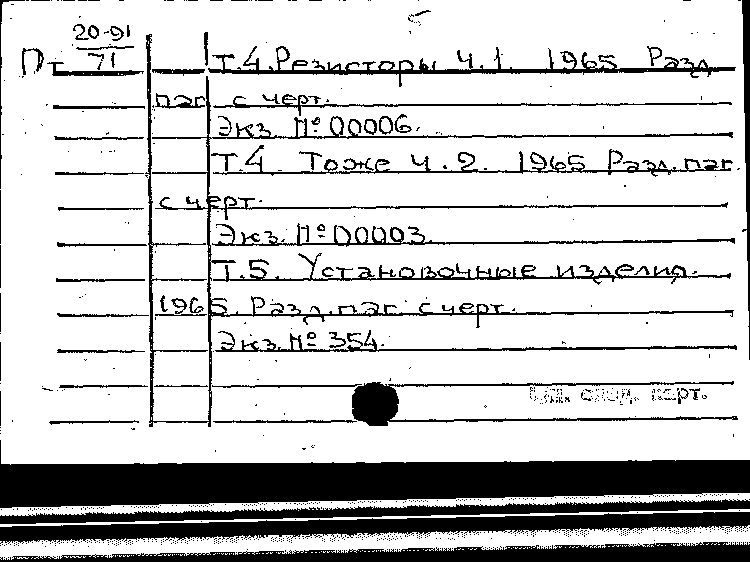 20-91
Пт 71 Т.4. Резисторы Ч.1. 1965 Разд
паг с черт.
Экз. № 00006.
Т.4 Тоже Ч.2. 1965 Разд. паг.
с черт.
Экз. № 00003.
Т.5. Установочные изделия.
1965. Разд. паг. с черт.
Экз. № 354.
след. карт.